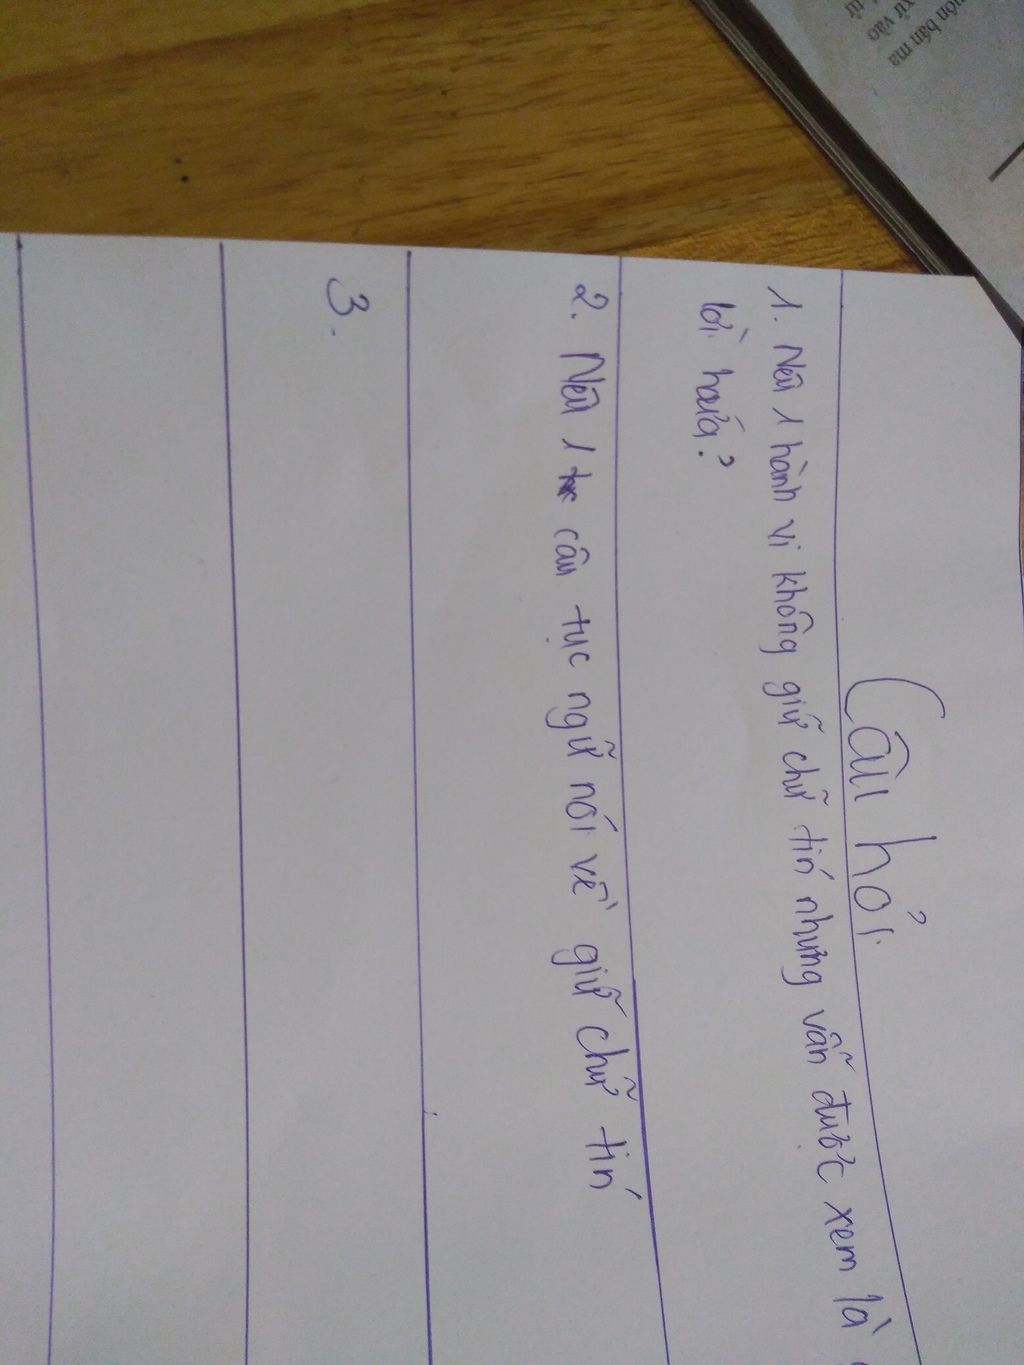 Câu hỏi
1. Nêu 1 hành vi không giữ chữ tín nhưng vẫn được xem là
lời hứa?
2. Nêu 1 câu tục ngữ nói về giữ chữ tín
3.
môn bán ma
xử vào
từ